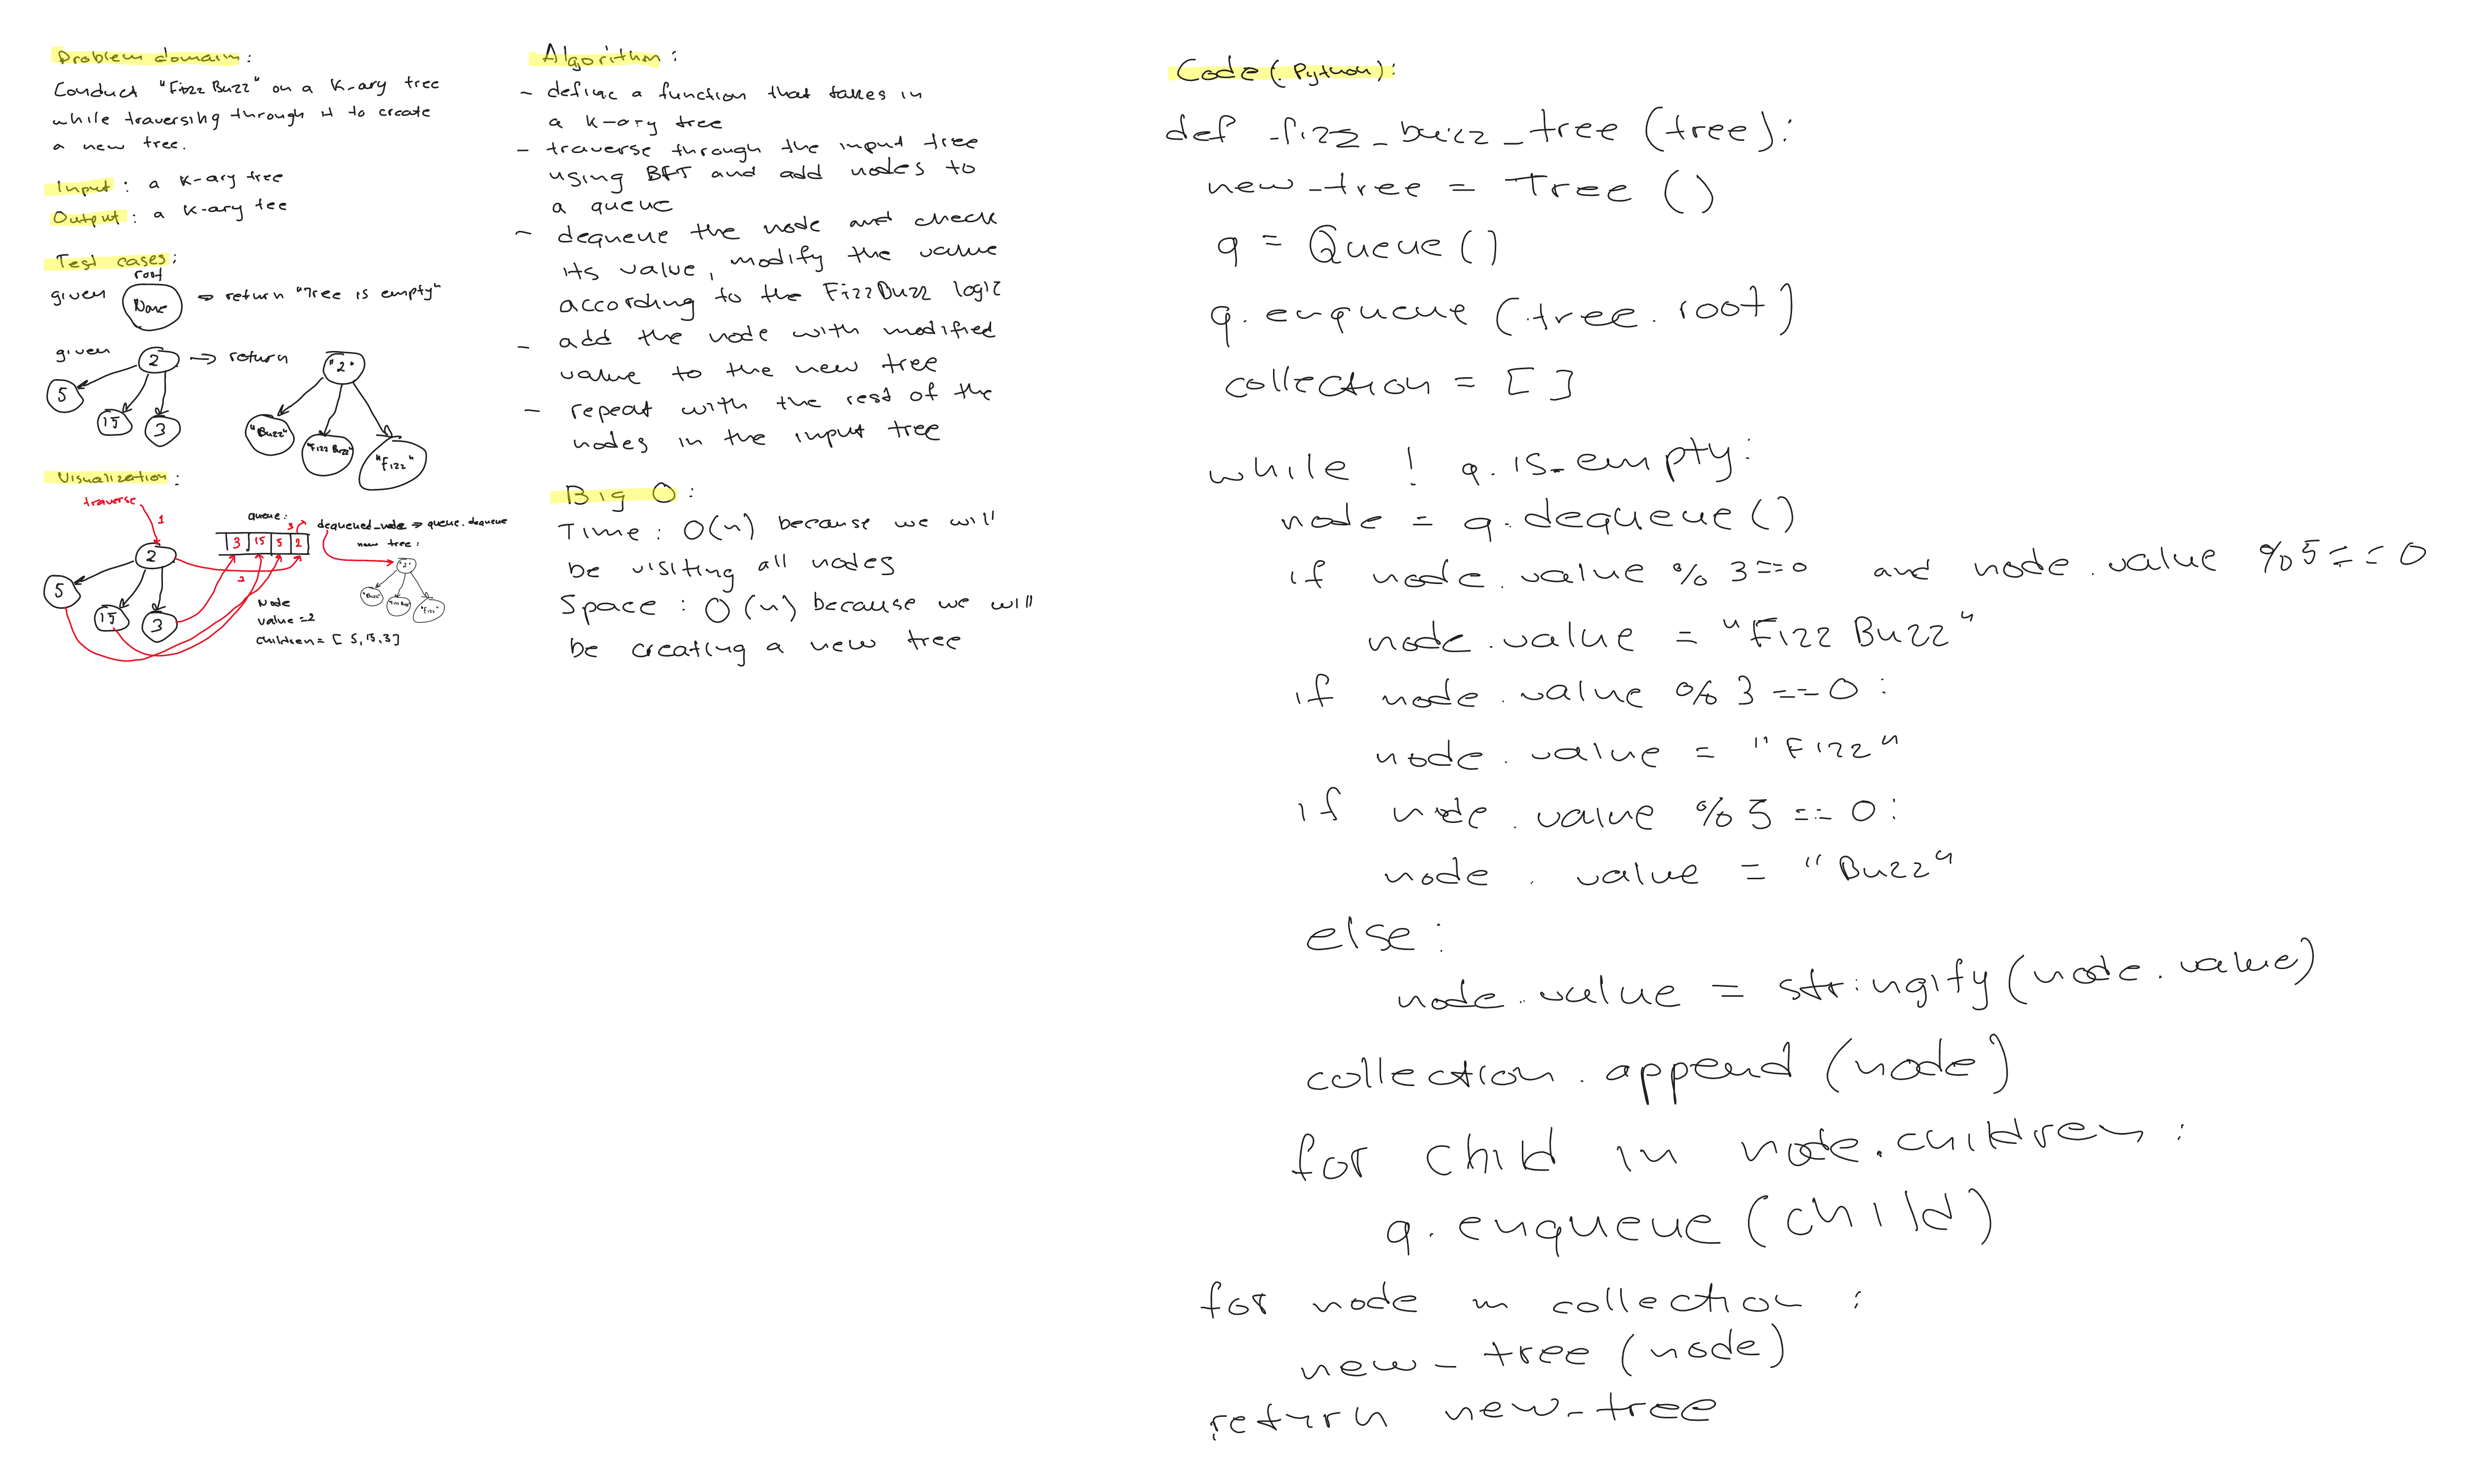 Problem domain:
Conduct "FizzBuzz" on a K-ary tree
while traversing through it to create
a new tree.
Input: a K-ary tree
Output: a K-ary tee
Test cases:
root
given None → return "Tree is empty"
given 2 → return "2"
5 15 3
"Buzz" "FizzBuzz" "Fizz"
Visualization:
traverse
1
queue:
3
dequeued_node → queue.dequeue
3 15 5 2
new tree:
2
2
"2"
5 15 3
"Buzz" "Fizz Buzz" "Fizz"
Node
value = 2
children = [5, 15, 3]
Algorithm:
- define a function that takes in
a k-ary tree
- traverse through the input tree
using BFT and add nodes to
a queue
- dequeue the node and check
its value, modify the value
according to the FizzBuzz logic
- add the node with modified
value to the new tree
- repeat with the rest of the
nodes in the input tree
Big O:
Time: O(n) because we will
be visiting all nodes
Space: O(n) because we will
be creating a new tree
Code (Python):
def fizz_buzz_tree (tree):
new_tree = Tree ()
q = Queue ()
q.enqueue (tree.root)
collection = [ ]
while ! q.is_empty:
node = q.dequeue()
if node.value % 3==0 and node.value %5==0
node.value = "Fizz Buzz"
if node.value % 3 ==0:
node.value = "Fizz"
if node.value % 5 == 0:
node.value = "Buzz"
else:
node.value = stringify(node.value)
collection.append (node)
for child in node.children:
q.enqueue (child)
for node in collection:
new_tree (node)
return new_tree